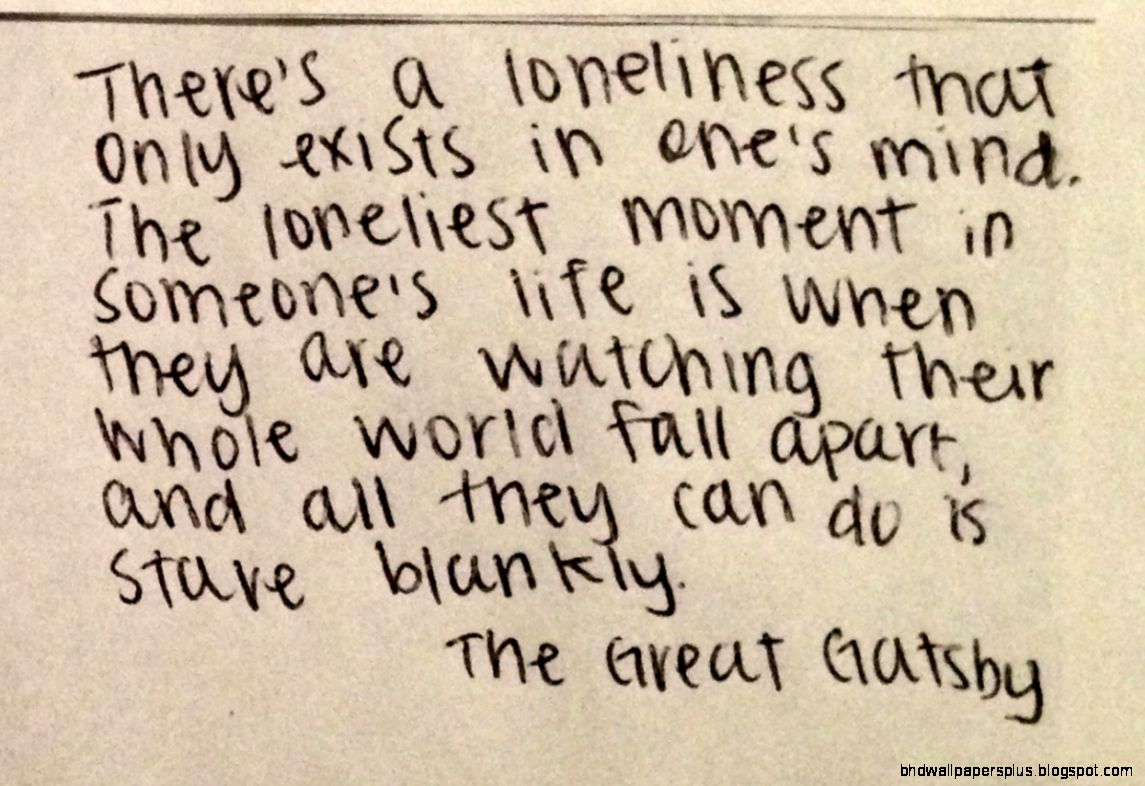 There's a loneliness that
only exists in one's mind.
The loneliest moment in
someone's life is when
they are watching their
whole world fall apart,
and all they can do is
stare blankly.
The Great Gatsby
bhdwallpapersplus.blogspot.com